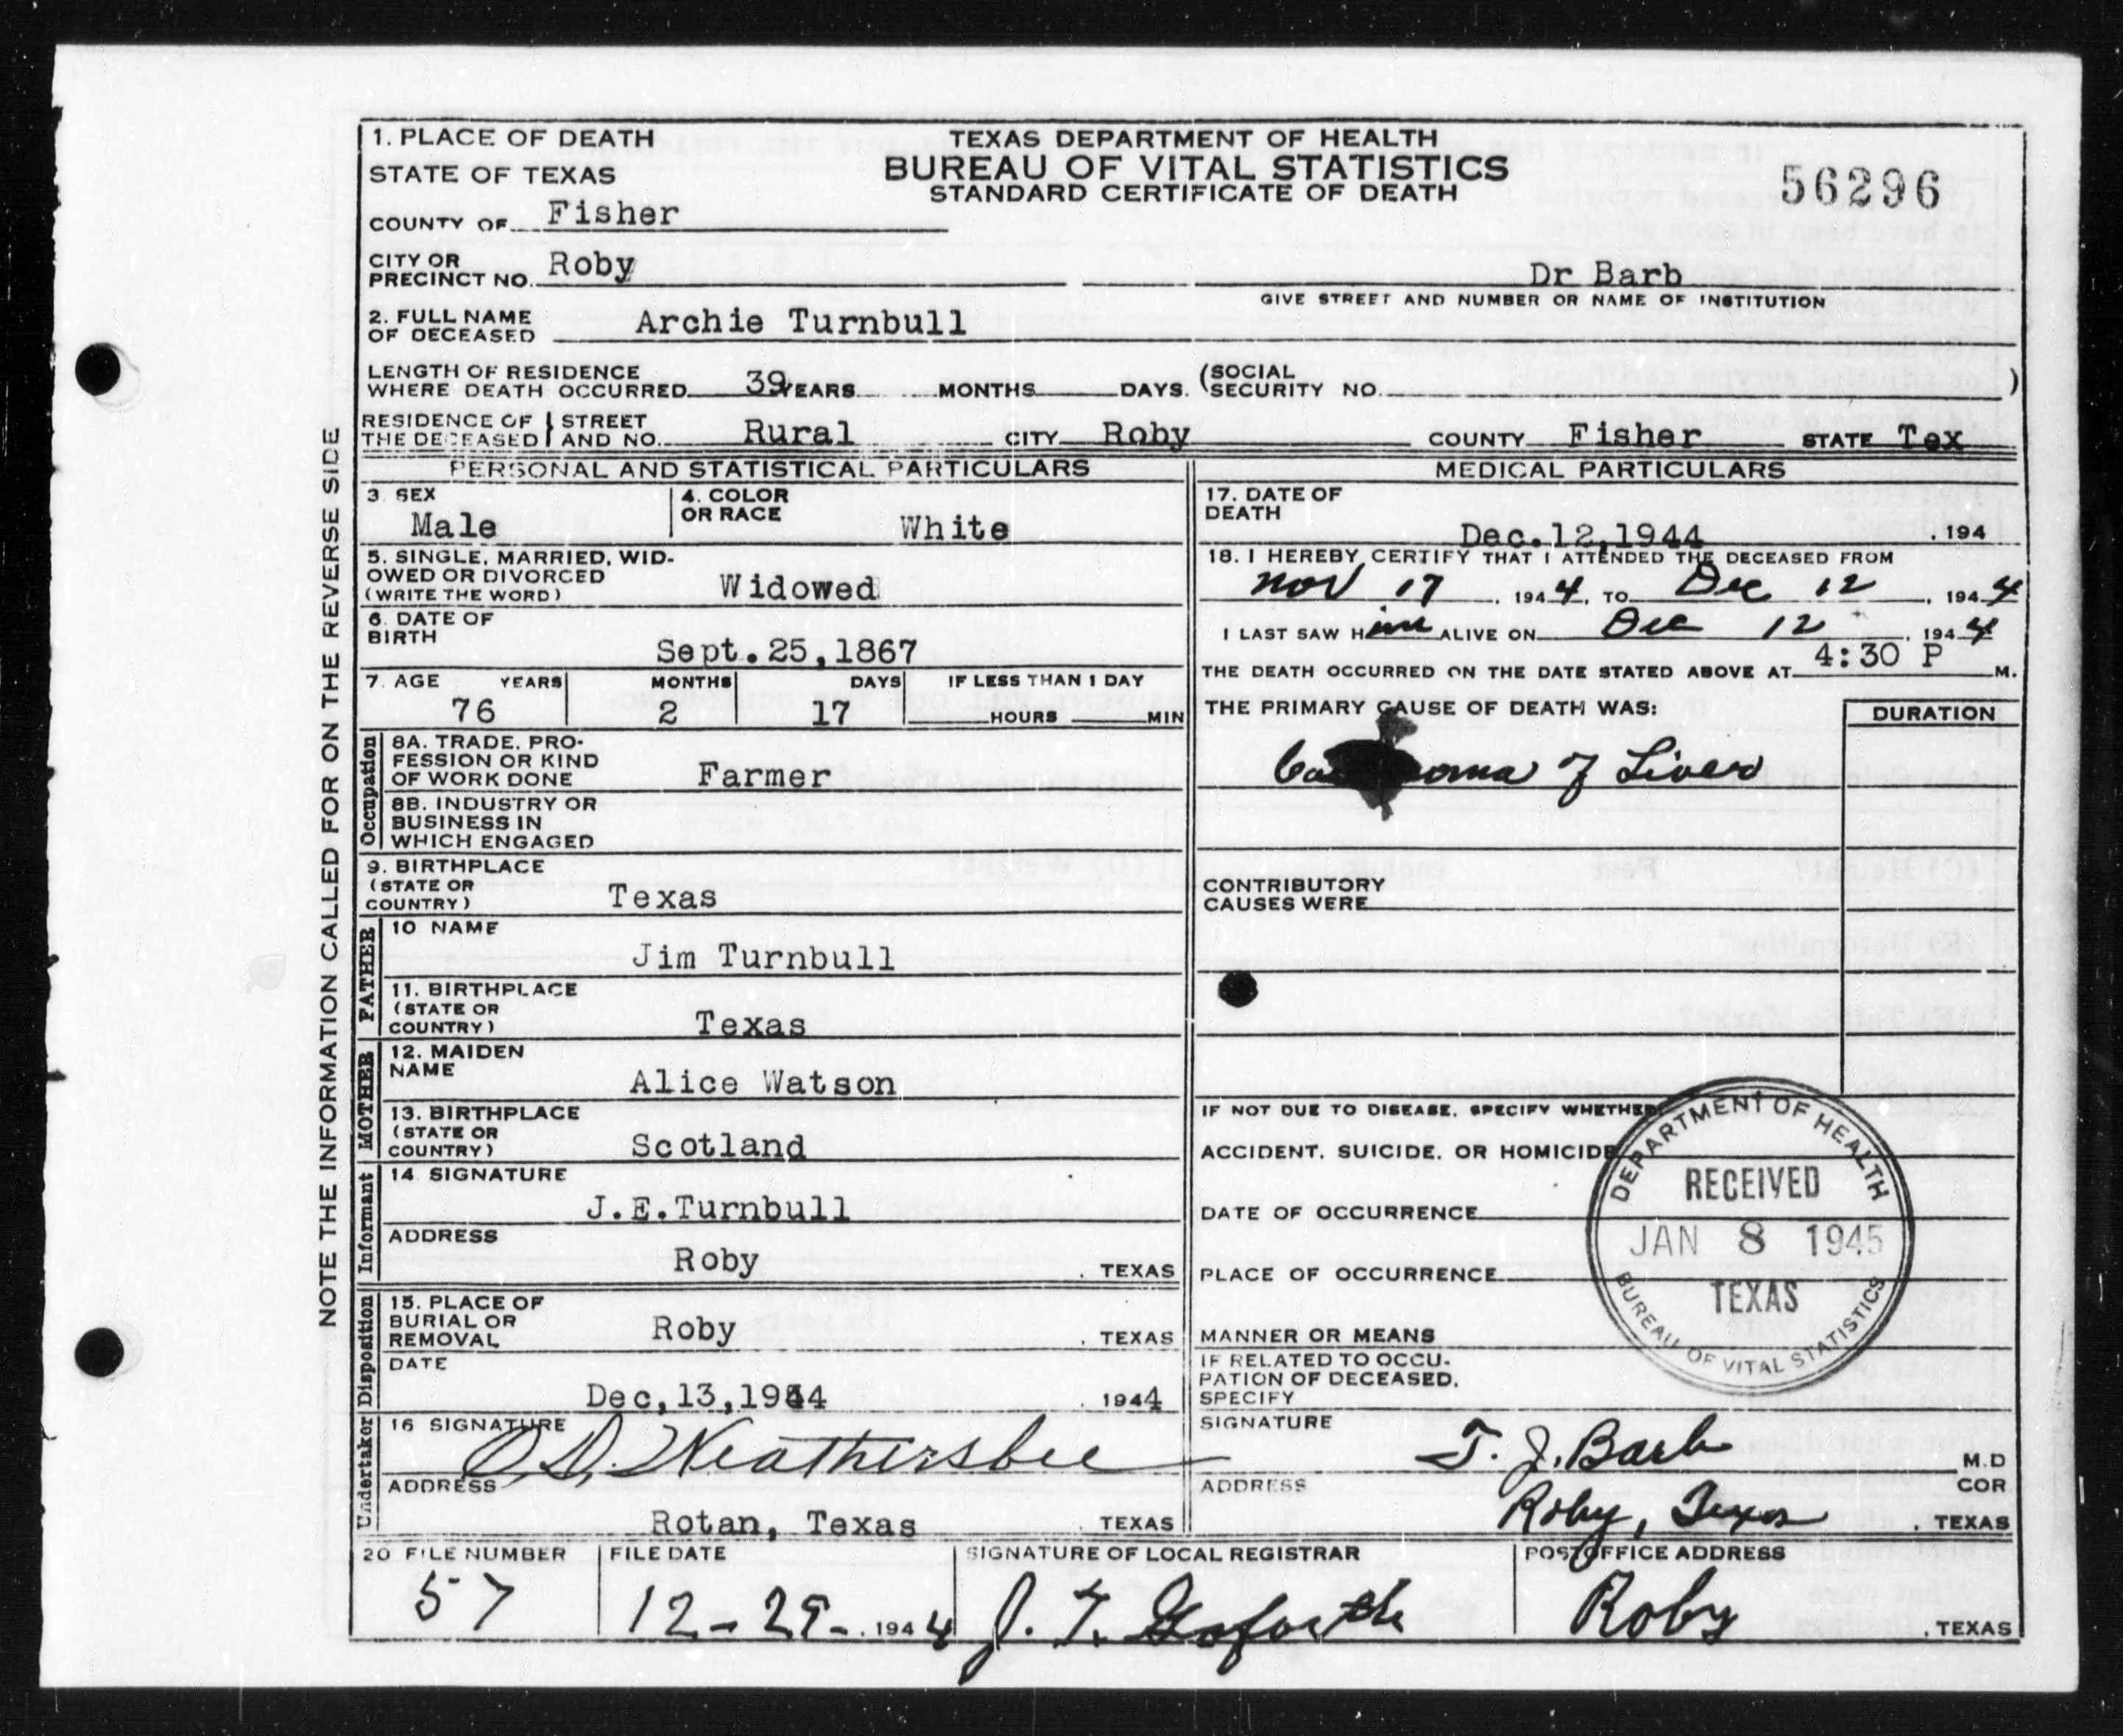 1. PLACE OF DEATH
STATE OF TEXAS
COUNTY OF Fisher
CITY OR PRECINCT NO. Roby
TEXAS DEPARTMENT OF HEALTH
BUREAU OF VITAL STATISTICS
STANDARD CERTIFICATE OF DEATH
56296
Dr Barb
GIVE STREET AND NUMBER OR NAME OF INSTITUTION
2. FULL NAME
OF DECEASED Archie Turnbull
LENGTH OF RESIDENCE
WHERE DEATH OCCURRED 39 YEARS MONTHS DAYS. (SOCIAL SECURITY NO. )
RESIDENCE OF THE DECEASED STREET AND NO. Rural CITY Roby COUNTY Fisher STATE Tex
NOTE THE INFORMATION CALLED FOR ON THE REVERSE SIDE
PERSONAL AND STATISTICAL PARTICULARS
3. SEX
Male
4. COLOR
OR RACE White
5. SINGLE, MARRIED, WID-
OWED OR DIVORCED
(WRITE THE WORD) Widowed
6. DATE OF
BIRTH
Sept.25,1867
7. AGE YEARS MONTHS DAYS IF LESS THAN 1 DAY
76 2 17 HOURS MIN
Occupation
8A. TRADE, PRO-
FESSION OR KIND
OF WORK DONE Farmer
8B. INDUSTRY OR
BUSINESS IN
WHICH ENGAGED
9. BIRTHPLACE
(STATE OR
COUNTRY) Texas
FATHER
10 NAME
Jim Turnbull
11. BIRTHPLACE
(STATE OR
COUNTRY) Texas
MOTHER
12. MAIDEN
NAME
Alice Watson
13. BIRTHPLACE
(STATE OR
COUNTRY) Scotland
Informant
14 SIGNATURE
J.E.Turnbull
ADDRESS
Roby , TEXAS
Disposition
15. PLACE OF
BURIAL OR
REMOVAL Roby , TEXAS
DATE
Dec,13,1944 , 1944
Undertaker
16 SIGNATURE
O. D. Weathersbee
ADDRESS
Rotan, Texas , TEXAS
MEDICAL PARTICULARS
17. DATE OF
DEATH
Dec.12,1944 , 194
18. I HEREBY CERTIFY THAT I ATTENDED THE DECEASED FROM
Nov 17 , 1944, TO Dec 12 , 1944
I LAST SAW Him ALIVE ON Dec 12 , 1944
THE DEATH OCCURRED ON THE DATE STATED ABOVE AT 4:30 P M.
THE PRIMARY CAUSE OF DEATH WAS: DURATION
of Liver
CONTRIBUTORY
CAUSES WERE
IF NOT DUE TO DISEASE, SPECIFY WHETHER
ACCIDENT, SUICIDE, OR HOMICIDE
DATE OF OCCURRENCE
PLACE OF OCCURRENCE
MANNER OR MEANS
IF RELATED TO OCCU-
PATION OF DECEASED,
SPECIFY
DEPARTMENT OF HEALTH
RECEIVED
JAN 8 1945
TEXAS
BUREAU OF VITAL STATISTICS
SIGNATURE T. J. Barb M.D
COR
ADDRESS
Roby, Texas , TEXAS
20 FILE NUMBER
57
FILE DATE
12-29-, 1944
SIGNATURE OF LOCAL REGISTRAR
J. T. Goforth
POST OFFICE ADDRESS
Roby , TEXAS